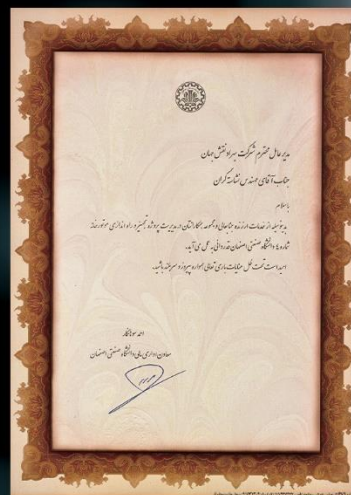 مدیر عامل محترم شرکت سپراد نقش جهان
جناب آقای مهندس نشاسته گران
با سلام
بدینوسیله از خدمات ارزنده جنابعالی و مجموعه همکارانتان در مدیریت پروژه تجهیز و راه اندازی موتورخانه
شماره ۵ دانشگاه صنعتی اصفهان قدردانی به عمل می آید.
امید است تحت ظل عنایات باری تعالی همواره پیروز و سربلند باشید.
احمد سوهانکار
معاون اداری مالی دانشگاه صنعتی اصفهان